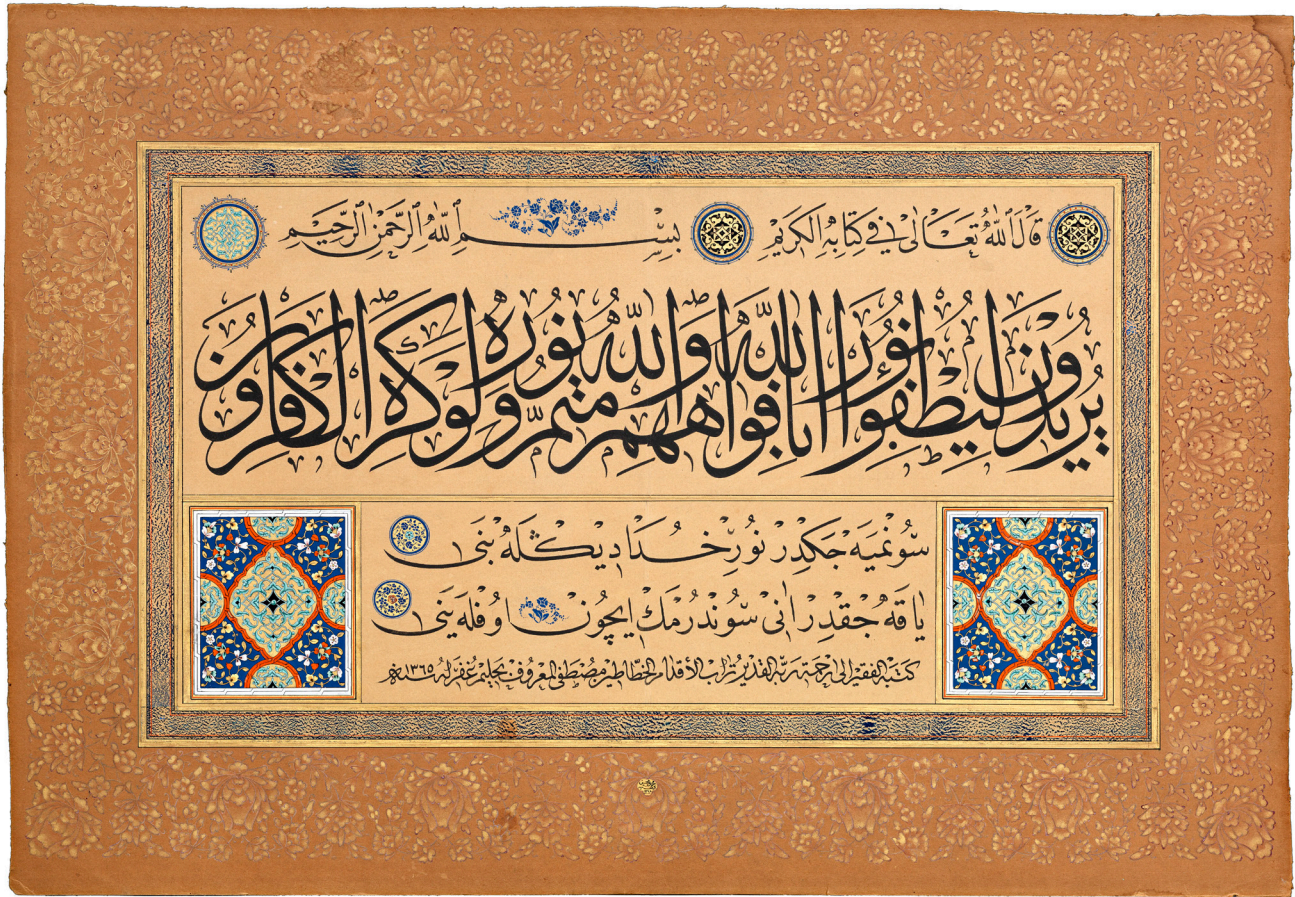 قَالَ اللّٰهُ تَعَالٰى فِي كِتَابِهِ الْكَرِيمِ بِسْــــمِ ٱللّٰهِ ٱلرَّحْمٰنِ ٱلرَّحِيمِ
يُرِيدُونَ لِيُطْفِؤُا نُورَ اللّٰهِ بِاَفْوَاهِهِمْ وَاللّٰهُ مُتِمُّ نُورِهِ وَلَوْ كَرِهَ الْكَافِرُونَ
سُونميَه جَكدِرْ نُورِ خُدَا دِيكْلَه بَنى
يَاقَه جَقدِر اَنى سُوندُرمكْ ايچُونْ اوفلَه يَنى
كتبه الفقير الى رحمة ربه القدير تراب الأقدام الخطاطين مصطفى المعروف بحليم غفر له ١٣٦٥